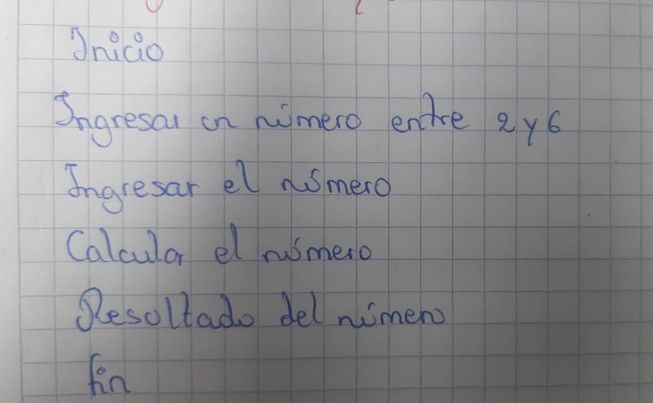 Inicio
Ingresar un número entre 2 y 6
Ingresar el número
Calcular el número
Resultado del número
fin